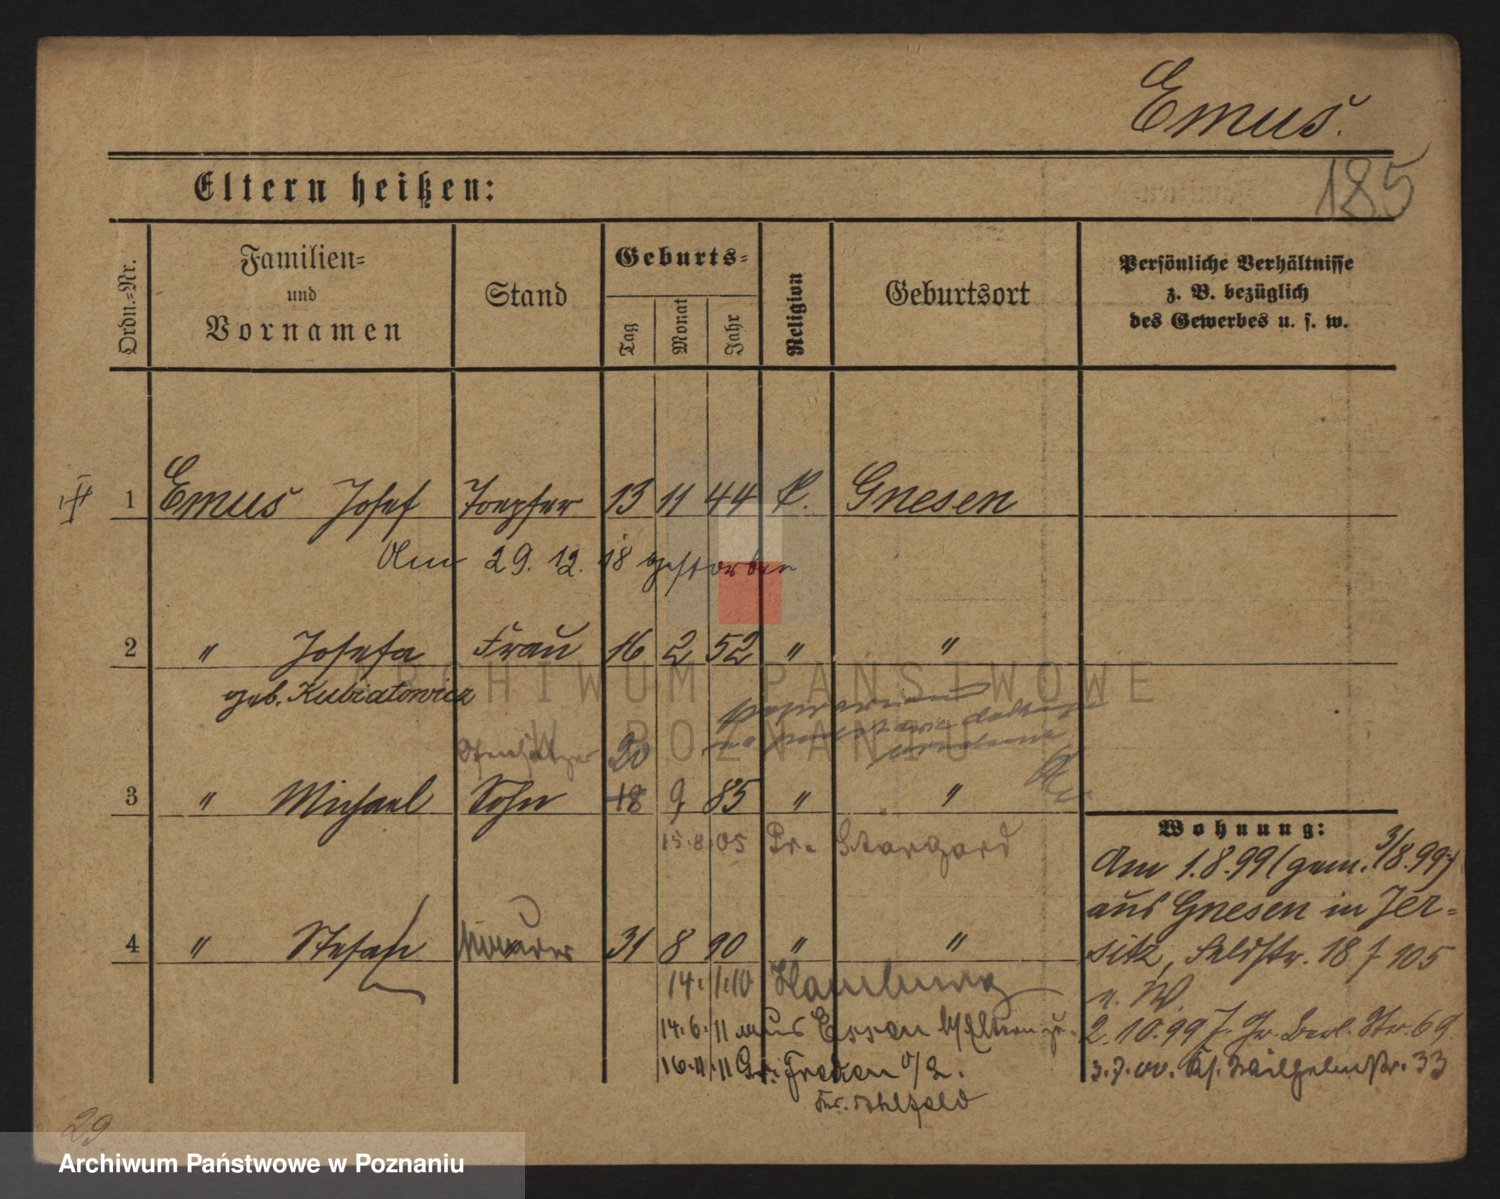 Emus.
185
Eltern heißen:
Ordn.=Nr.
Familien=
und
Vornamen
Stand
Geburts=
Tag
Monat
Jahr
Religion
Geburtsort
Persönliche Verhältnisse
z. B. bezüglich
des Gewerbes u. s. w.
1 Emus Josef Toepfer 13 11 44 k. Gnesen
Am 29. 12. 18 gestorben
2 " Josefa Frau 16 2 52 " "
geb. Kubiatowicz
20
3 " Michael Sohn 18 9 85 " "
15.8.05 Pr. Stargard
4 " Stefan 31 8 90 " "
14. 1.10 Hamburg
14.6.11 aus Essen
16.11.11 Gr.
Wohnung:
Am 1.8.99 (gem. 3/8.99)
aus Gnesen in Jer=
sitz, Feldstr. 18 f 105
n. W.
2.10.99 Gr. Berl. Str. 69
3.7.00. Wilhelmstr. 33
29
ARCHIWUM PAŃSTWOWE
W POZNANIU
Archiwum Państwowe w Poznaniu